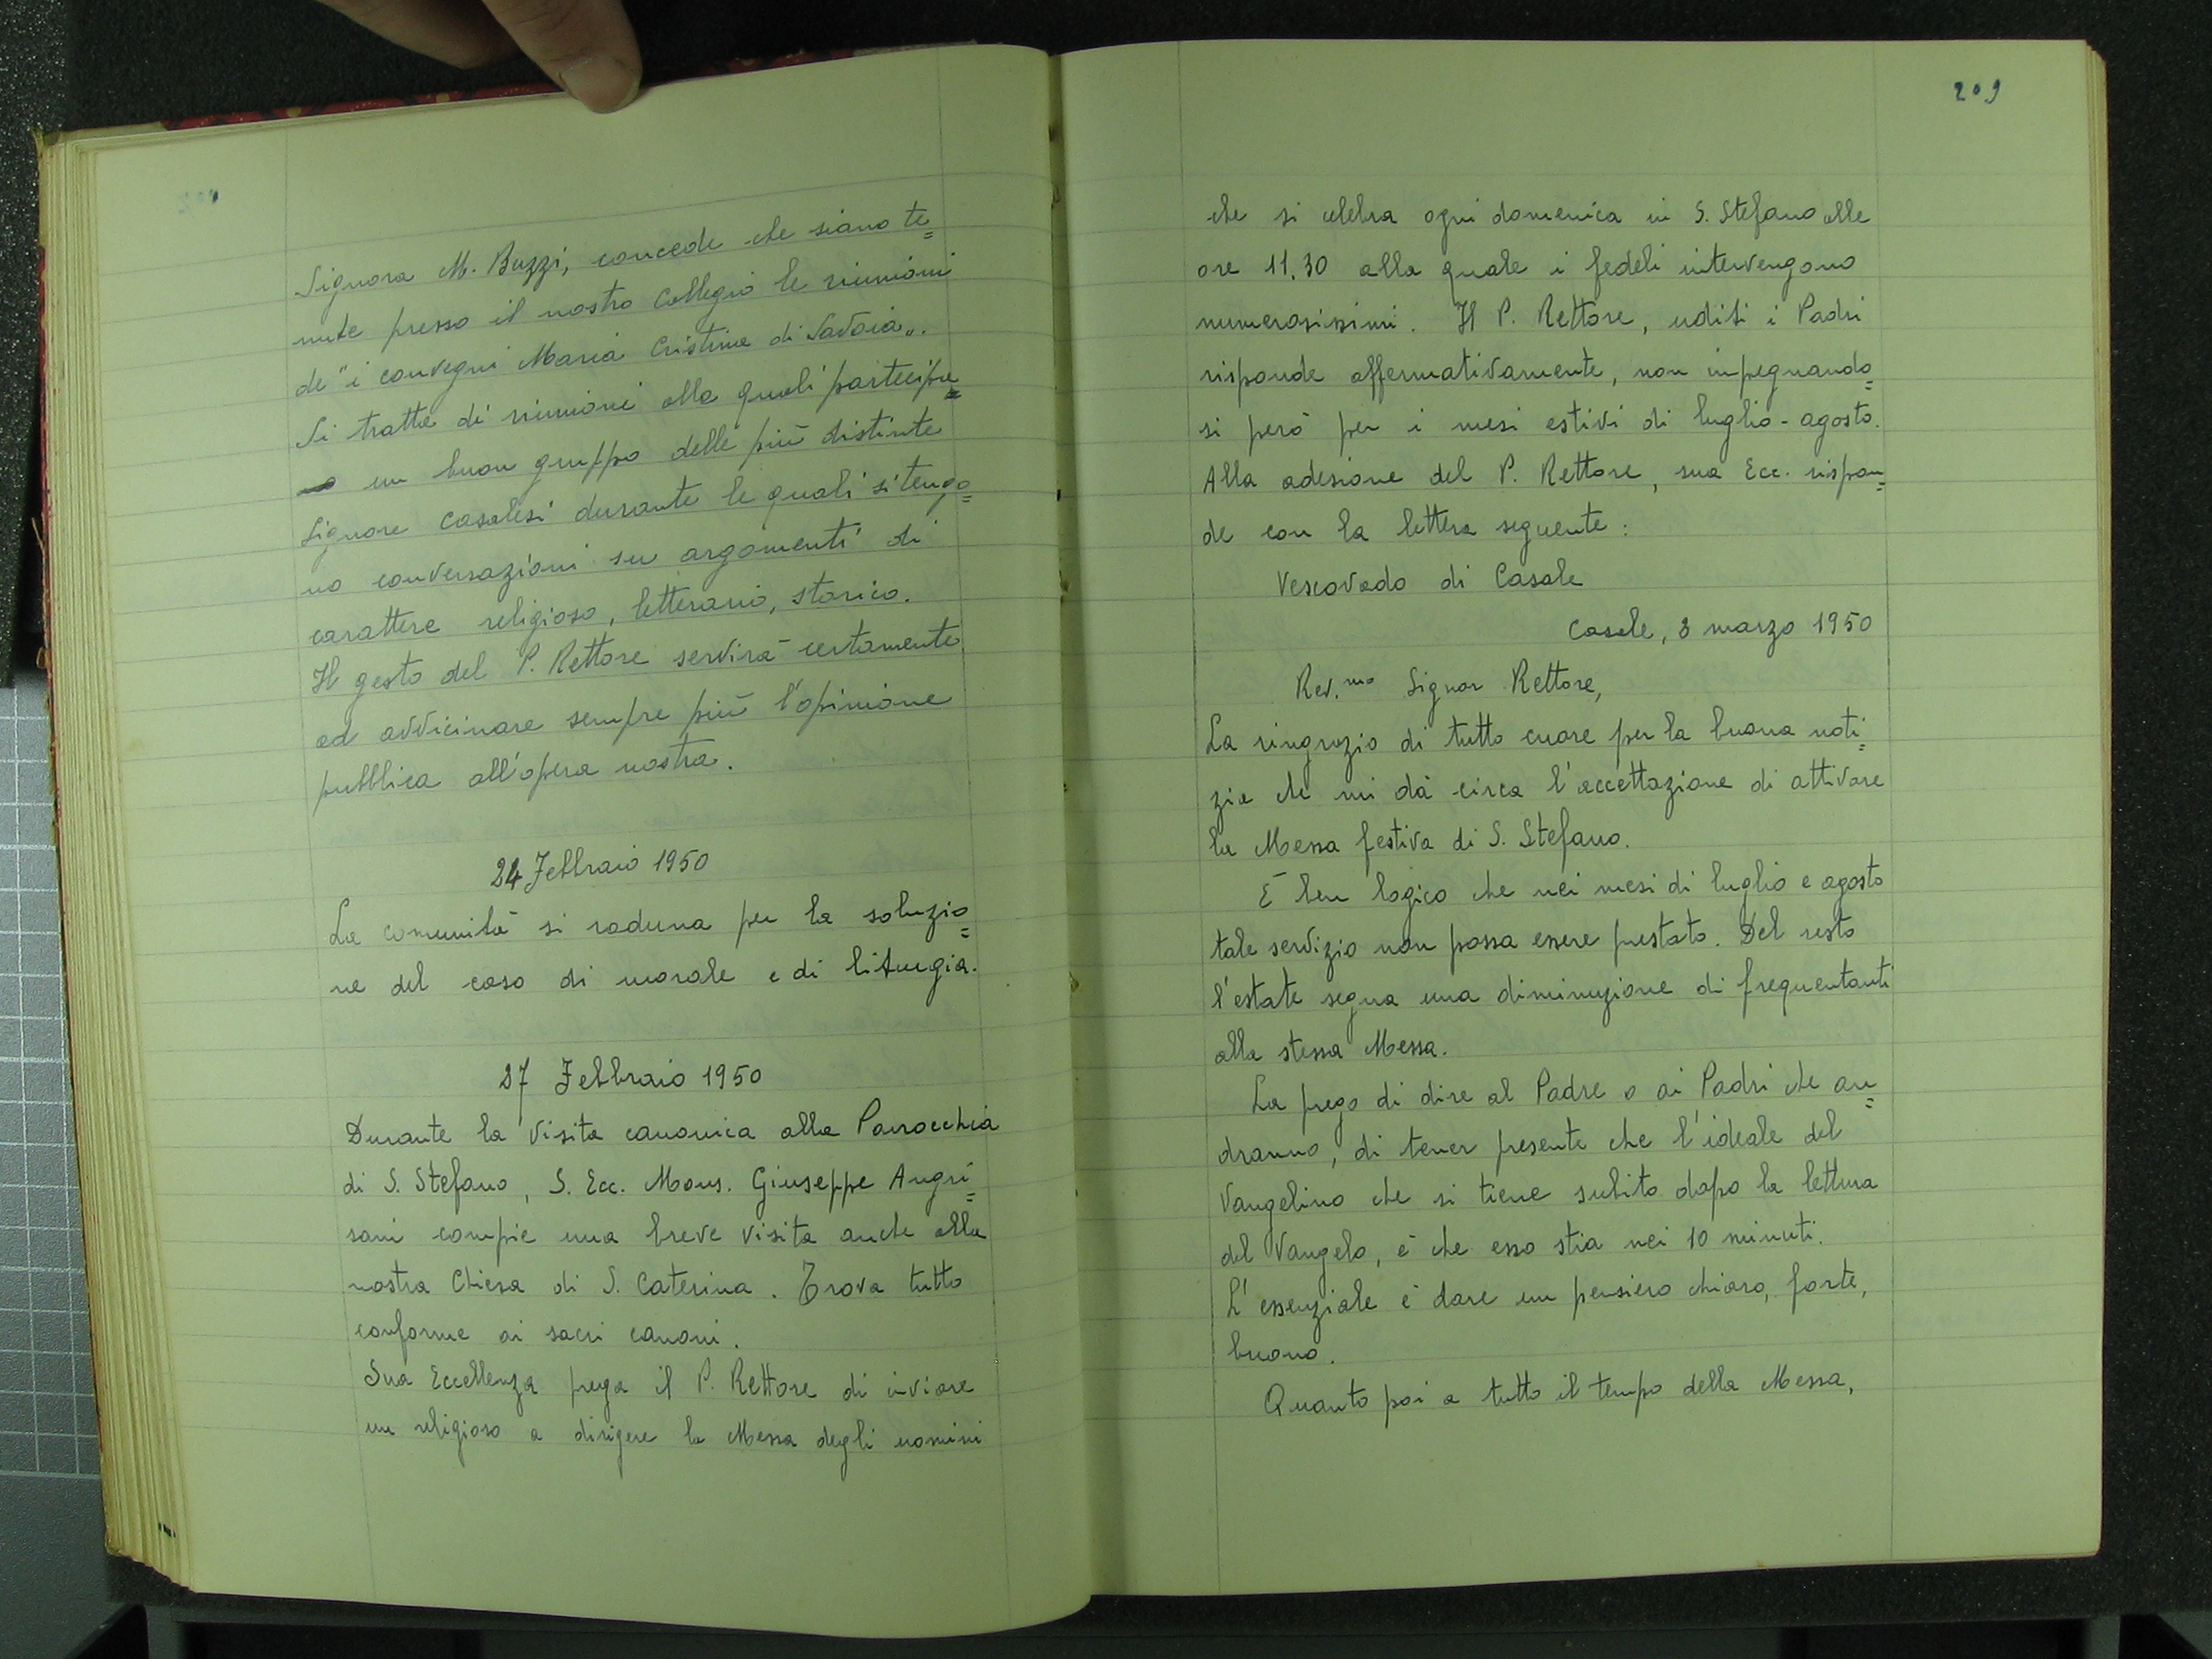 Signora M. Buzzi, concede che siano te=
nute presso il nostro Collegio le riunioni
de "i convegni Maria Cristina di Savoia".
Si tratta di riunioni alle quali partecipa=
un buon gruppo delle più distinte
Signore Casalesi durante le quali si tengo=
no conversazioni su argomenti di
carattere religioso, letterario, storico.
Il gesto del P. Rettore servirà certamente
ad avvicinare sempre più l'opinione
pubblica all'opera nostra.
24 Febbraio 1950
La comunità si raduna per la soluzio=
ne del caso di morale e di liturgia.
27 Febbraio 1950
Durante la visita canonica alla Parrocchia
di S. Stefano, S. Ecc. Mons. Giuseppe Angri=
sani compie una breve visita anche alla
nostra Chiesa di S. Caterina. Trova tutto
conforme ai sacri canoni.
Sua Eccellenza prega il P. Rettore di inviare
un religioso a dirigere la Messa degli uomini
209
che si celebra ogni domenica in S. Stefano alle
ore 11.30 alla quale i fedeli intervengono
numerosissimi. Il P. Rettore, uditi i Padri
risponde affermativamente, non impegnando=
si però per i mesi estivi di luglio - agosto.
Alla adesione del P. Rettore, sua Ecc. rispon=
de con la lettera seguente:
Vescovado di Casale
Casale, 3 marzo 1950
Rev.mo Signor Rettore,
La ringrazio di tutto cuore per la buona noti=
zia che mi dà circa l'accettazione di attivare
la Messa festiva di S. Stefano.
È ben logico che nei mesi di luglio e agosto
tale servizio non possa essere prestato. Del resto
l'estate segna una diminuzione di frequentanti
alla stessa Messa.
La prego di dire al Padre o ai Padri che an=
dranno, di tener presente che l'ideale del
Vangelino che si tiene subito dopo la lettura
del Vangelo, è che esso stia nei 10 minuti.
L'essenziale è dare un pensiero chiaro, forte,
buono.
Quanto poi a tutto il tempo della Messa,